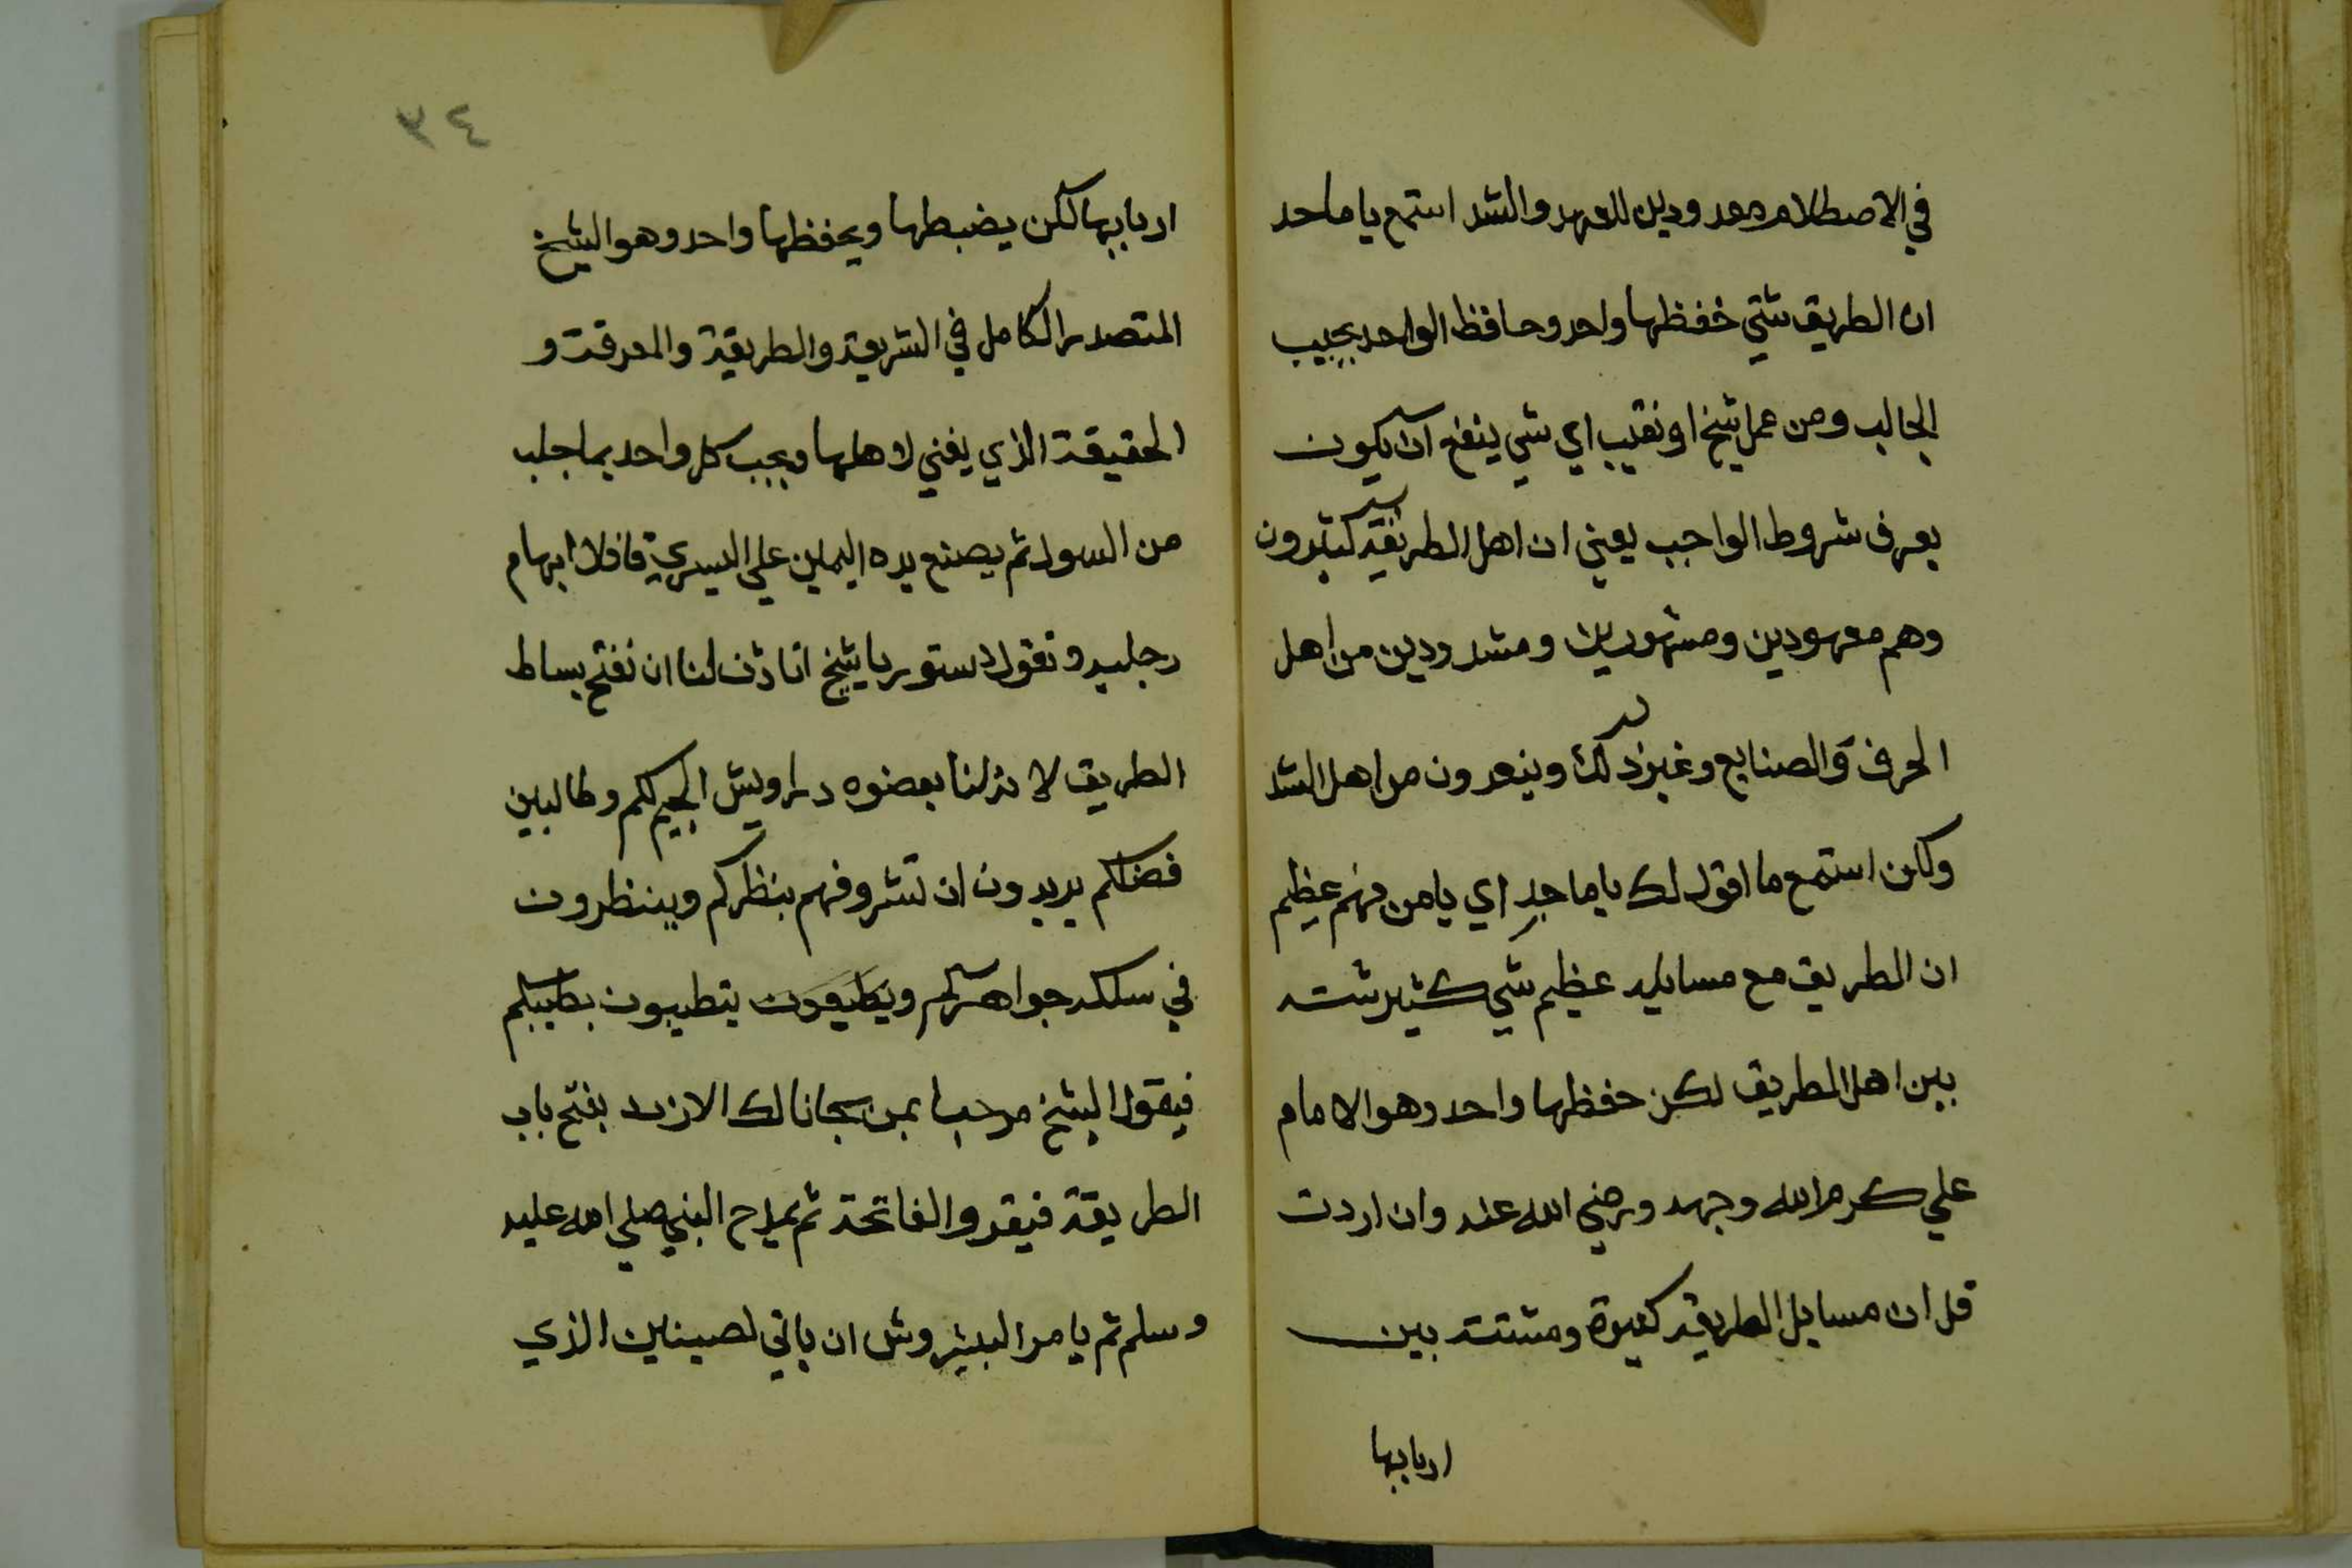 في الاصطلام معدودين للعهد والشد استمع يا ماجد
ان الطريق شتي حفظها واحد وحافظ الواحد يجيب
الجالب ومن عمل شيخ او نقيب اي شي ينفع ان يكون
يعرف شروط الواجب يعني ان اهل الطريقه كتيرون
وهم معهودين ومشهورين ومشدودين من اهل
الحرف والصنايع وغير ذلك وينعدون من اهل الشد
ولكن استمع ما اقول لك يا ماجد اي يا من فهم عظيم
ان الطريق مع مسايله عظيم شي كثير شته
بين اهل الطريق لكن حفظها واحد وهو الامام
علي كرم الله وجهه ورضي الله عنه وان اردت
قل ان مسايل الطريقه كثيرة ومشتته بين
اربابها
٣٤
اربابها لكن يضبطها ويحفظها واحد وهو الشيخ
المتصدر الكامل في الشريعة والطريقة والمعرفة و
الحقيقة الذي يفني لاهلها ويجب كل واحد بما جلب
من السول ثم يصنع يده اليمين علي اليسري قافلا ابهام
رجليه وتقول دستور يا شيخ اتاذن لنا ان نفتح بساط
الطريق لا نزلنا بعضوه دراويش اليكم وطالبين
فضلكم يريدون ان تشروفهم بنظركم وينظرون
في سلكه جواهركم ويطيعون يتطيبون بطيبكم
فيقول الشيخ مرحبا بمن جانا لك الاذن بفتح باب
الطريقة فيقرو الفاتحة ثم يمدح النبي صلي الله عليه
وسلم ثم يامر البشروش ان ياتي لصيناين الذي